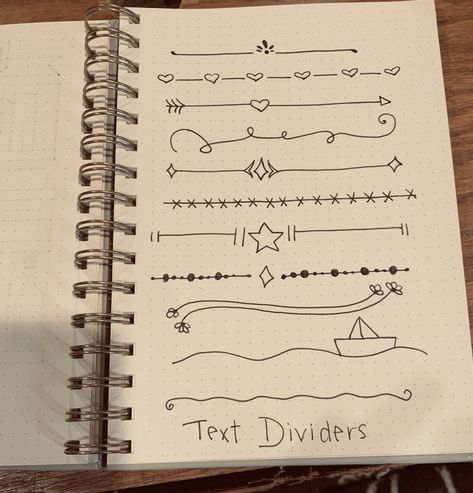 Text Dividers